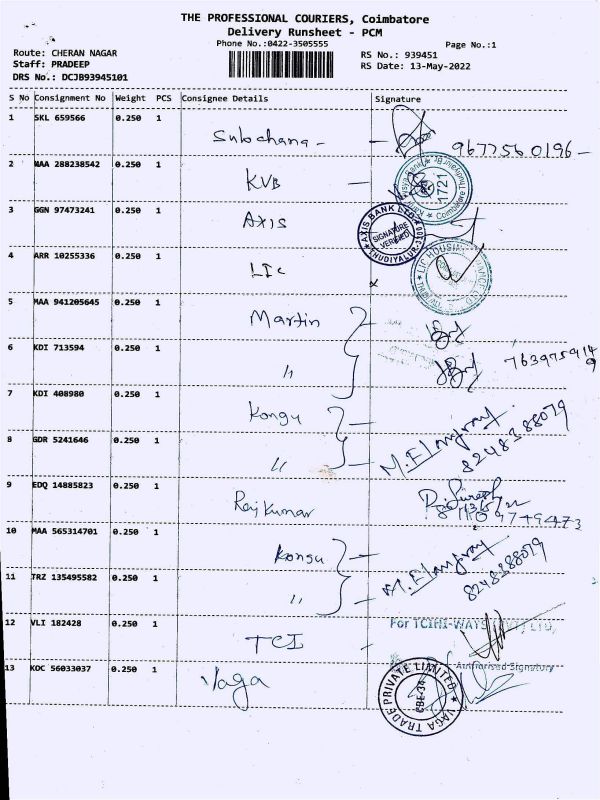 THE PROFESSIONAL COURIERS, Coimbatore
Delivery Runsheet - PCM
Phone No.:0422-3505555
Page No.:1
Route: CHERAN NAGAR
RS No.: 939451
Staff: PRADEEP
RS Date: 13-May-2022
DRS No.: DCJB93945101
S No Consignment No Weight PCS Consignee Details Signature
1 SKL 659566 0.250 1
Sulochana - 9677560196
2 MAA 288238542 0.250 1
KVB
1721
3 GGN 97473241 0.250 1
AXIS
AXIS BANK LTD
SIGNATURE VERIFIED
4 ARR 10255336 0.250 1
LIC
LIC HOUSING
5 MAA 941205645 0.250 1
Martin
6 KDI 713594 0.250 1
"
7 KDI 408980 0.250 1
Kongu
8 GDR 5241646 0.250 1
"
8248388079
9 EDQ 14885823 0.250 1
Rajkumar
10 MAA 565314701 0.250 1
Kongu
11 TRZ 135495582 0.250 1
"
8248388079
12 VLI 182428 0.250 1
TCI
For TCI HI-WAYS (PVT) LTD.
Authorised Signatory
13 KOC 56033037 0.250 1
Vaga
VAGA TRADE PRIVATE LIMITED
CBE-34